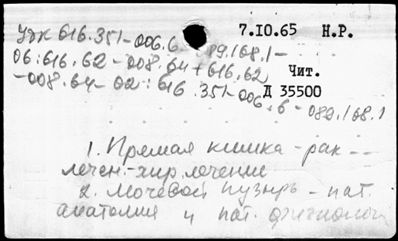 7.10.65 Н.Р.
УДК 616.351-006.6 89.168.1-
06:616.62-008.64+616.62
Чит.
-008.64-02:616.351-006.6-089.168.1
Д 35500
1. Прямая кишка-рак--
лечен.-хир. лечение
2. Мочевой пузырь-пат.
анатомия и пат. физиолог